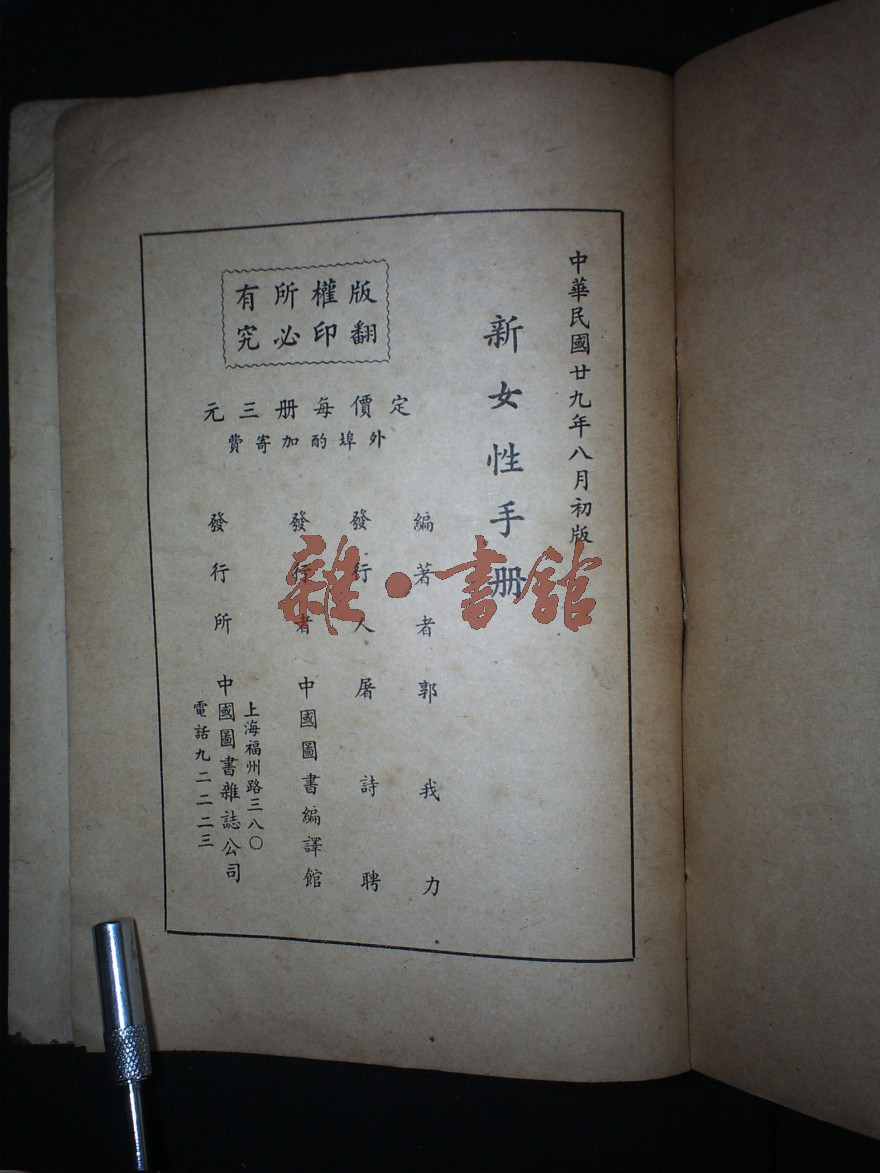 中華民國廿九年八月初版
新女性手册
編著者 郭我力
發行人 屠詩聘
發行者 中國圖書編譯館
發行所 中國圖書雜誌公司
上海福州路三八〇
電話九二二二三
版權所有
翻印必究
定價每册三元
外埠酌加寄費
雜·書館